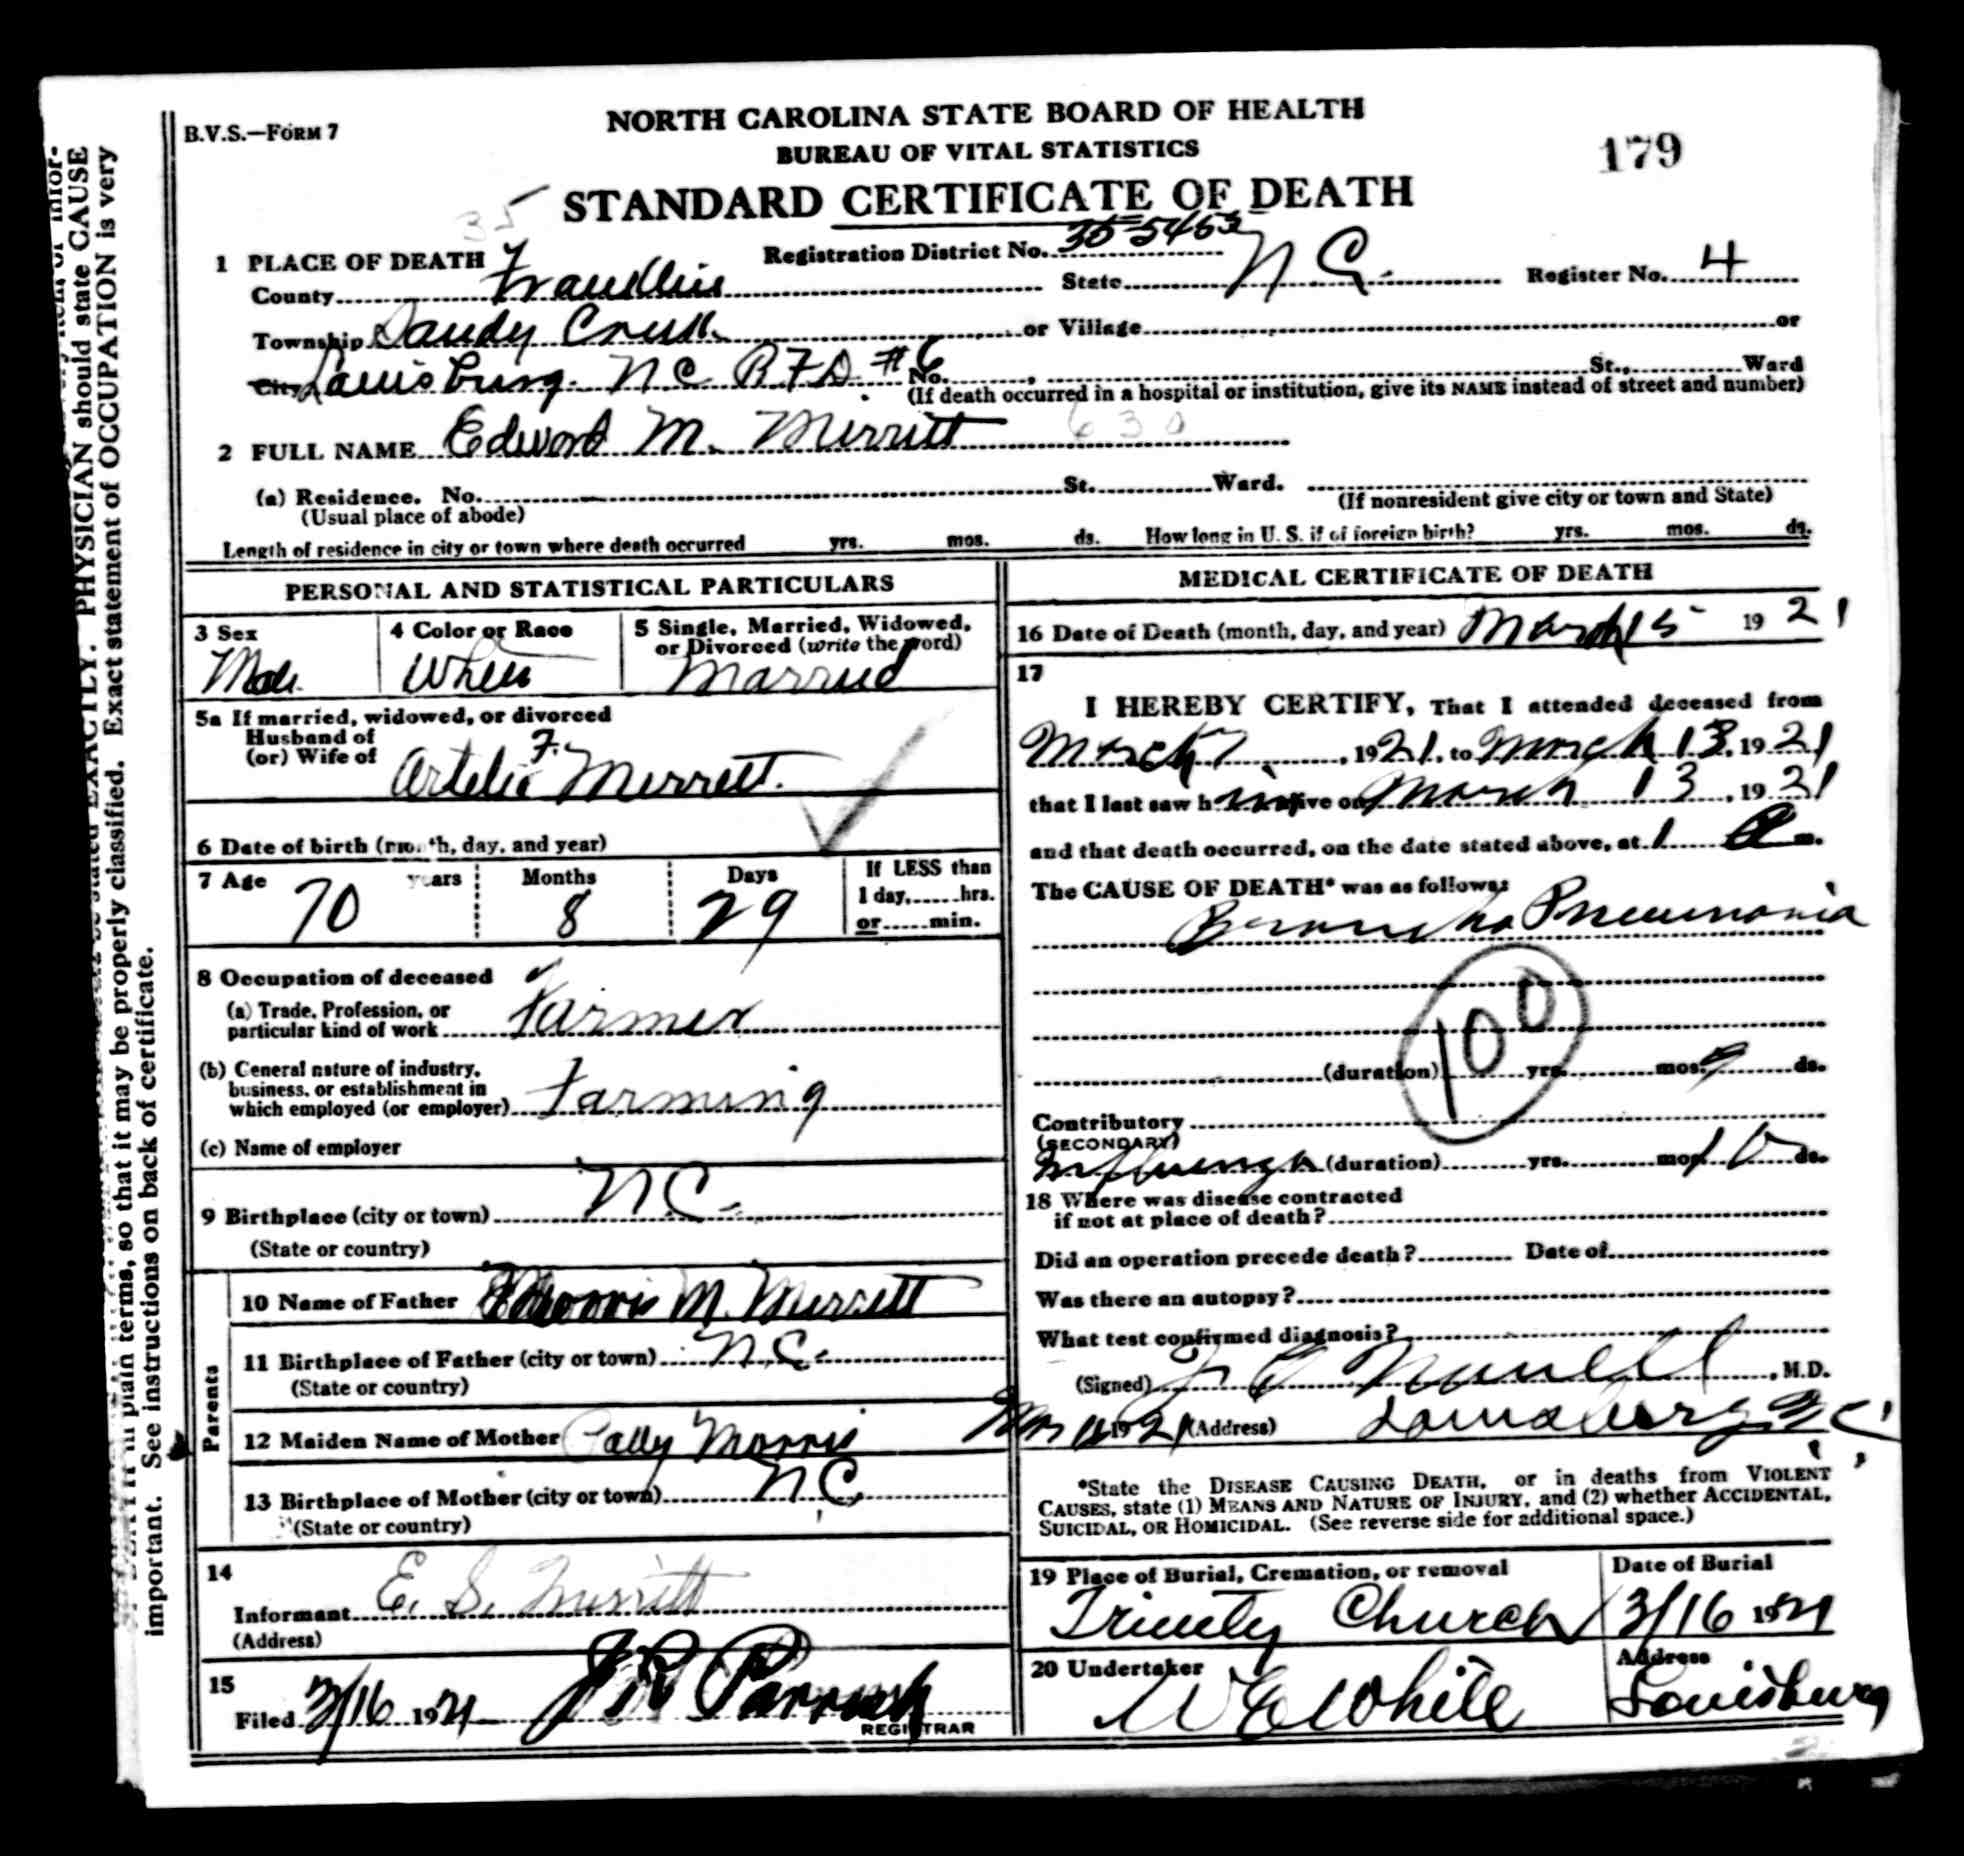 B.V.S.—FORM 7
NORTH CAROLINA STATE BOARD OF HEALTH
BUREAU OF VITAL STATISTICS
179
STANDARD CERTIFICATE OF DEATH
35
1 PLACE OF DEATH Registration District No. 35-5453
County Franklin State N C. Register No. 4
Township Sandy Creek or Village or
City Louisburg. NC RFD #6 No. St., Ward
(If death occurred in a hospital or institution, give its NAME instead of street and number)
2 FULL NAME Edward M. Merritt 630
(a) Residence. No. St. Ward.
(Usual place of abode) (If nonresident give city or town and State)
Length of residence in city or town where death occurred yrs. mos. ds. How long in U. S. if of foreign birth? yrs. mos. ds.
PERSONAL AND STATISTICAL PARTICULARS
3 Sex
Male
4 Color or Race
White
5 Single, Married, Widowed,
or Divorced (write the word)
Married
5a If married, widowed, or divorced
Husband of
(or) Wife of
F.
Artelia Merritt.
6 Date of birth (month, day, and year)
7 Age years Months Days If LESS than
1 day, hrs.
or min.
70 8 29
8 Occupation of deceased
(a) Trade, Profession, or
particular kind of work Farmer
(b) General nature of industry,
business, or establishment in
which employed (or employer) Farming
(c) Name of employer
9 Birthplace (city or town) NC.
(State or country)
Parents
10 Name of Father Morris M. Merritt
11 Birthplace of Father (city or town) N.C.
(State or country)
12 Maiden Name of Mother Morris
13 Birthplace of Mother (city or town) NC
(State or country)
14
Informant E. S. Merritt
(Address)
15
Filed 3/16 1921 Parrish
REGISTRAR
MEDICAL CERTIFICATE OF DEATH
16 Date of Death (month, day, and year) March 15 1921
17
I HEREBY CERTIFY, That I attended deceased from
March 7, 1921, to March 13, 1921
that I last saw him alive on March 13, 1921
and that death occurred, on the date stated above, at 1 a m.
The CAUSE OF DEATH* was as follows:
Broncho Pneumonia
100
(duration) yrs. mos. 9 ds.
Contributory
(SECONDARY)
Influenza (duration) yrs. mos. 10 ds.
18 Where was disease contracted
if not at place of death?
Did an operation precede death? Date of
Was there an autopsy?
What test confirmed diagnosis?
(Signed) , M.D.
1921 (Address) Louisburg N C
*State the DISEASE CAUSING DEATH, or in deaths from VIOLENT
CAUSES, state (1) MEANS AND NATURE OF INJURY, and (2) whether ACCIDENTAL,
SUICIDAL, OR HOMICIDAL. (See reverse side for additional space.)
19 Place of Burial, Cremation, or removal
Trinity Church
Date of Burial
3/16 1921
20 Undertaker
W E White
Address
Louisburg
should state CAUSE
EXACTLY. PHYSICIAN
OCCUPATION is very
important. See instructions on back of certificate.
in plain terms, so that it may be properly classified. Exact statement of